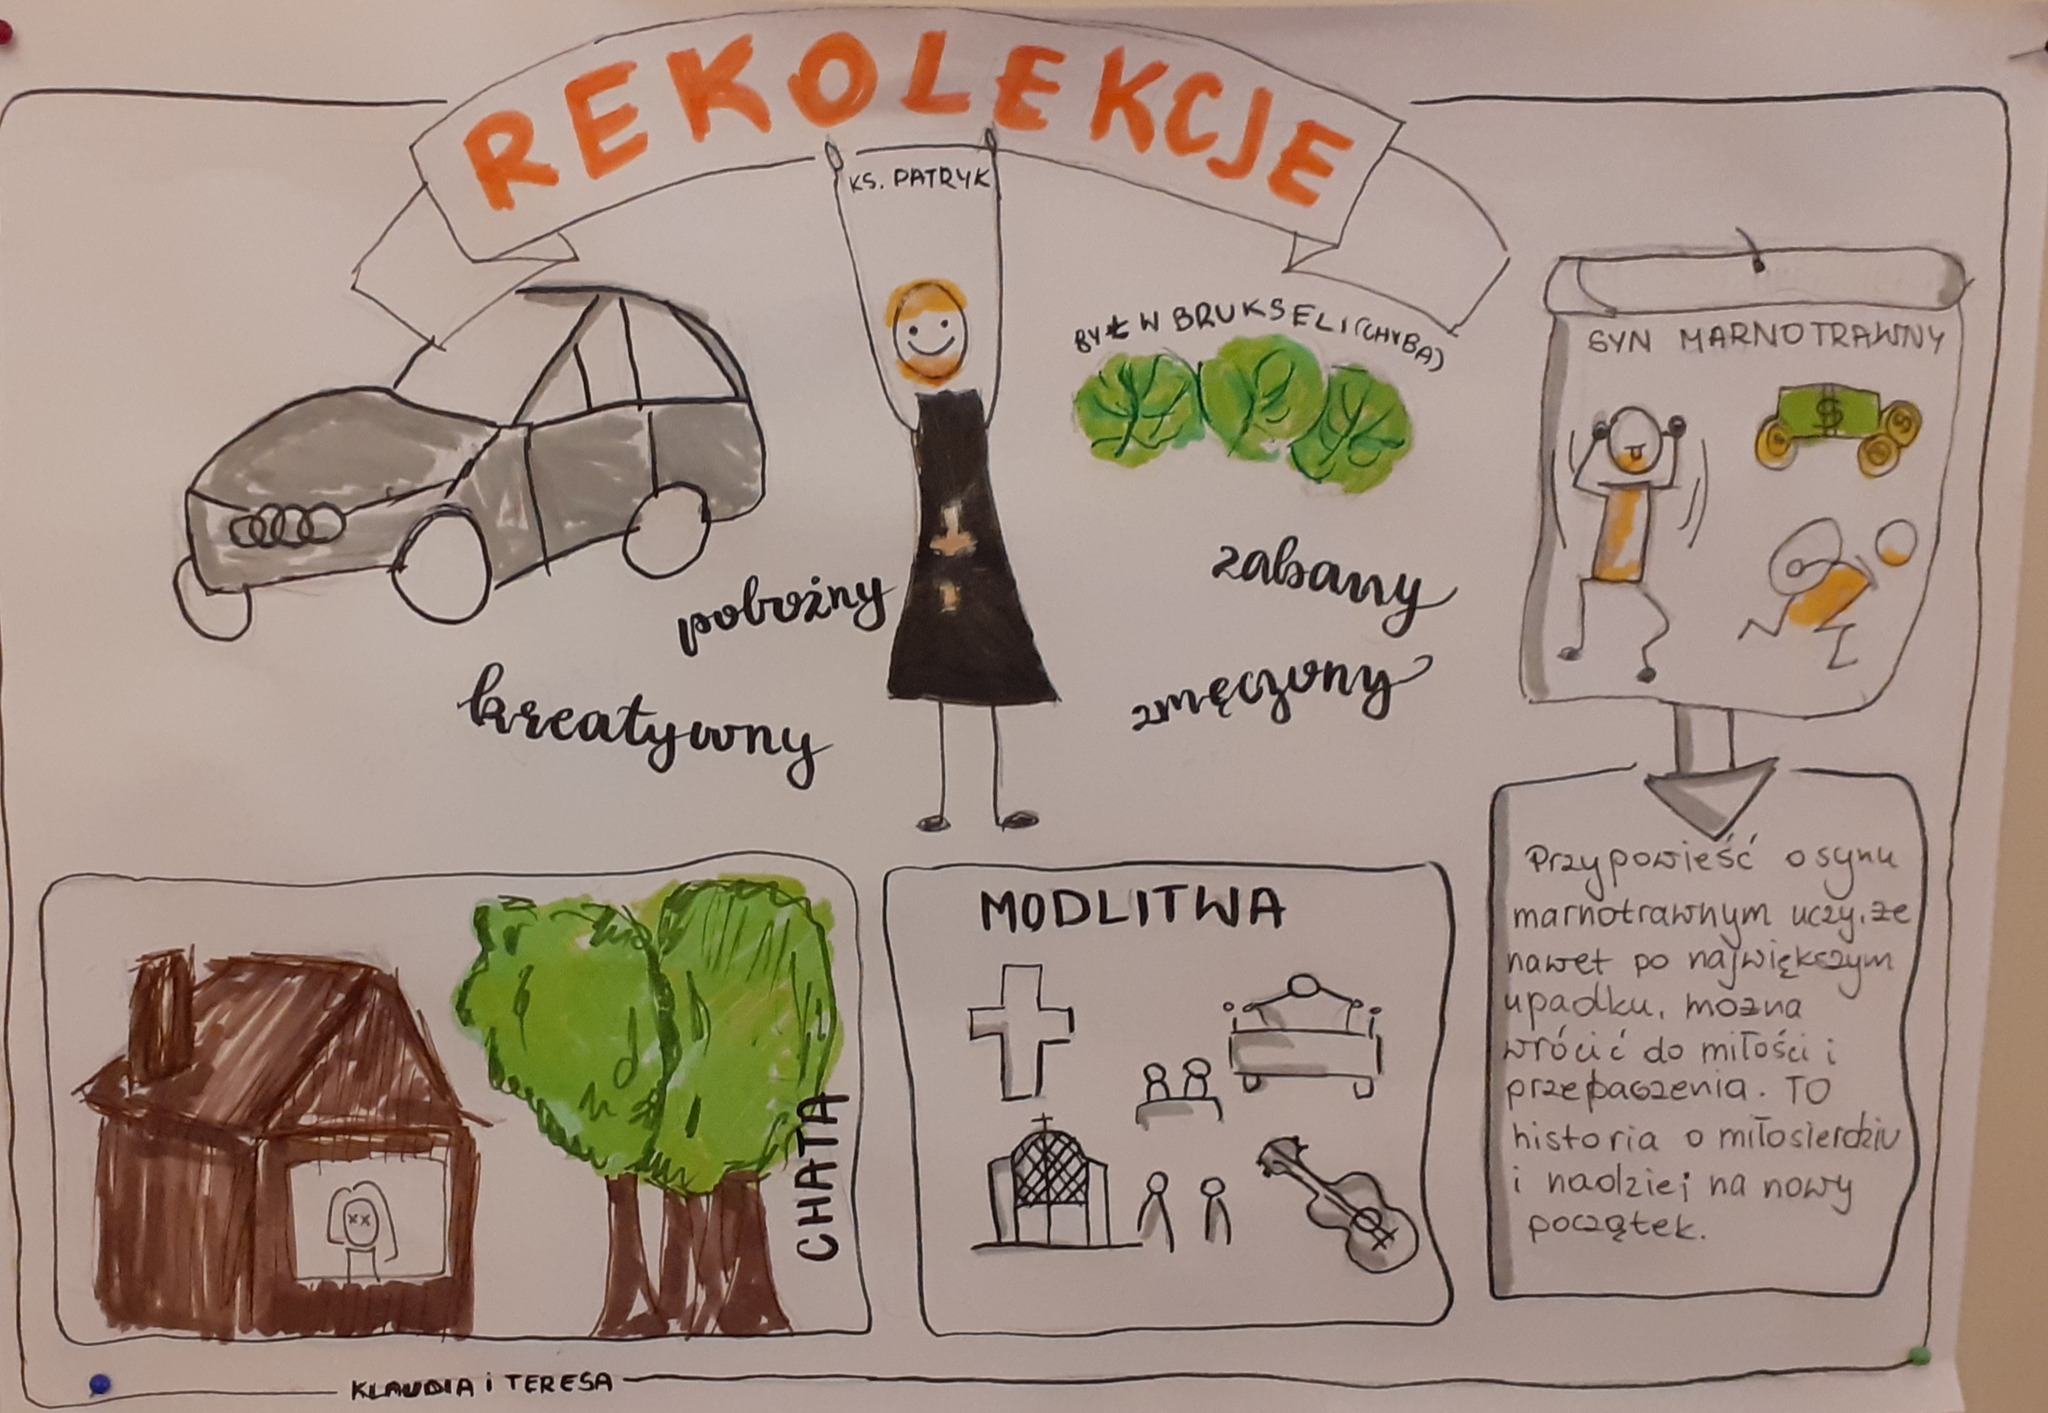 REKOLEKCJE
KS. PATRYK
BYŁ W BRUKSELI (CHYBA)
pobożny
kreatywny
zabawny
zmęczony
SYN MARNOTRAWNY
$
Przypowieść o synu
marnotrawnym uczy, że
nawet po największym
upadku, można
wrócić do miłości i
przebaczenia. TO
historia o miłosierdziu
i nadziei na nowy
początek.
CHATA
MODLITWA
KLAUDIA i TERESA